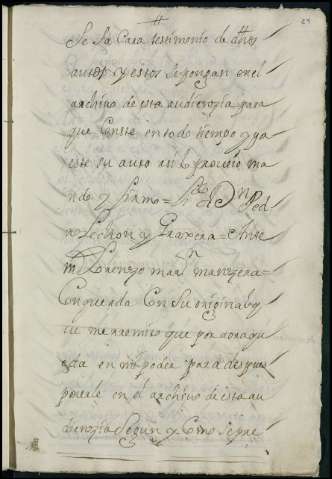 24
Se Saca testimonio de dhos
autos y estos se pongan en el
archivo de esta audiencia para
que Conste en todo tiempo y pa
este su auto asi lo proveio ma
ndo y firmo = Dn Ped
Ante
mi Lorenzo manl manzera =
Conquerda Con Su original q
ue me rremito que por aora que
da en mi poder para des pues
ponerle en el archivo de esta au
diencia Segun y Como Se pre